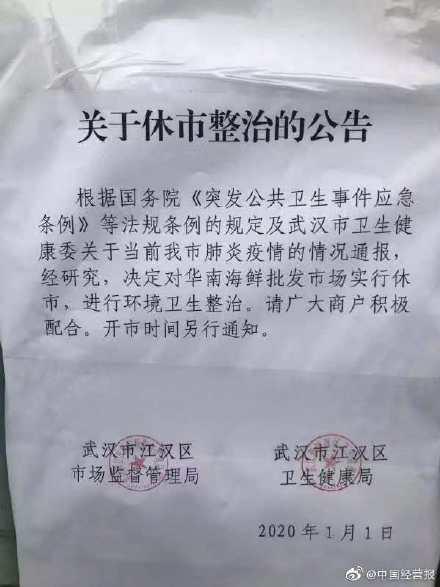 关于休市整治的公告
根据国务院《突发公共卫生事件应急
条例》等法规条例的规定及武汉市卫生健
康委关于当前我市肺炎疫情的情况通报，
经研究，决定对华南海鲜批发市场实行休
市，进行环境卫生整治。请广大商户积极
配合。开市时间另行通知。
武汉市江汉区
市场监督管理局
武汉市江汉区
卫生健康局
2020年1月1日
@中国经营报